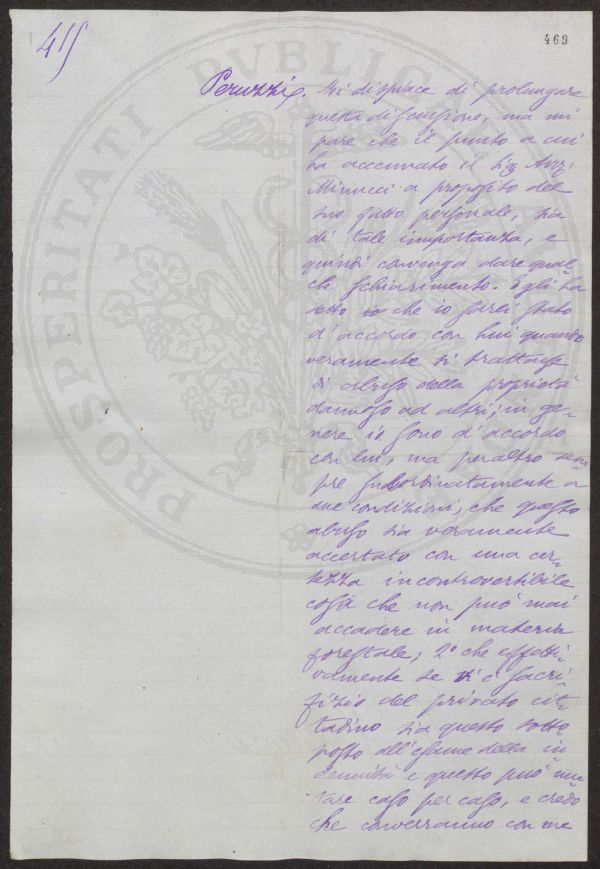 415
469
Peruzzi. Mi dispiace di prolungare
questa discussione, ma mi
pare che il punto a cui
ha accennato il Sig Avv.
Minucci a proposito del
suo fatto personale, sia
di tale importanza, e
quindi convenga dare qual-
che schiarimento. Egli ha
detto io che io sarei stato
d'accordo con lui quando
veramente si trattasse
di abuso della proprietà
dannoso ad altri; in ge-
nere io sono d'accordo
con lui, ma peraltro sem
pre subordinatamente a
due condizioni, che questo
abuso sia veramente
accertato con una cer-
tezza incontrovertibile
cosa che non può mai
accadere in materia
forestale; 2° che effetti-
vamente se vi è sacri-
fizio del privato cit-
tadino sia questo sotto-
posto all'esame della in
dennità e questo può mu-
tare caso per caso, e credo
che converranno con me
PROSPERITATI PVBLICAE